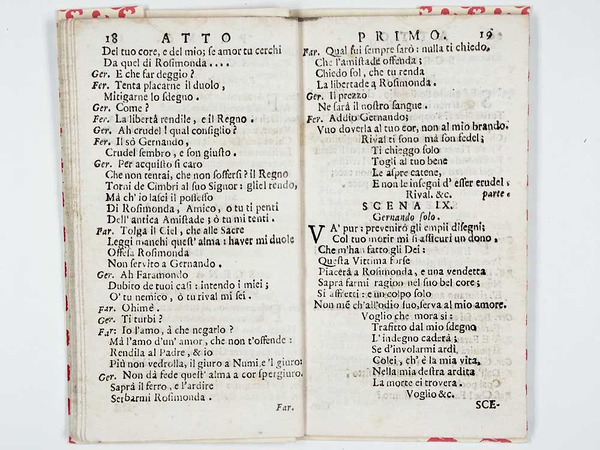 18 ATTO
Del tuo core, e del mio; se amor tu cerchi
Da quel di Rosimonda....
Ger. E che far deggio?
Fer. Tenta placarne il duolo,
Mitigarne lo sdegno.
Ger. Come?
Fer. La libertà rendile, e il Regno.
Ger. Ah crudel! qual consiglio?
Fer. Il sò Gernando,
Crudel sembro, e son giusto.
Ger. Per acquisto sì caro
Che non tentai, che non soffersi? il Regno
Torni de Cimbri al suo Signor: gliel rendo,
Mà ch'io lasci il possesso
Di Rosimonda, Amico, o tu ti penti
Dell'antica Amistade; ò tu mi tenti.
Far. Tolga il Ciel, che alle Sacre
Leggi manchi quest'alma: haver mi duole
Offesa Rosimonda
Non servito a Gernando.
Ger. Ah Faramondo
Dubito de tuoi casi: intendo i miei;
O' tu nemico, ò tu rival mi sei.
Far. Ohimè.
Ger. Ti turbi?
Far: Io l'amo, à che negarlo?
Mà l'amo d'un'amor, che non t'offende:
Rendila al Padre, & io
Più non vedrolla, il giuro a Numi e 'l giuro:
Ger. Non dà fede quest'alma a cor spergiuro.
Saprà il ferro, e l'ardire
Serbarmi Rosimonda.
Far.
PRIMO. 19
Far. Qual fui sempre sarò: nulla ti chiedo,
Che l'amistade offenda;
Chiedo sol, che tu renda
La libertade a Rosimonda.
Ger. Il prezzo
Ne sarà il nostro sangue.
Far. Addio Gernando;
Vuo doverla al tuo cor, non al mio brando.
Rival ti sono mà son fedel;
Ti chieggo solo
Togli al tuo bene
Le aspre catene,
E non le insegni d'esser crudel;
Rival. &c. parte.
SCENA IX.
Gernando solo.
VA' pur: preverirò gli empii disegni;
Col tuo morir mi si assicuri un dono,
Che m'han fatto gli Dei:
Questa Vittima forse
Piacerà a Rosimonda, e una vendetta
Saprà farmi ragion nel suo bel core;
Si affretti: e un colpo solo
Non mè ch'all'odio suo, serva al mio amore.
Voglio che mora sì:
Trafitto dal mio sdegno
L'indegno caderà;
Se d'involarmi ardì
Colei, ch'è la mia vita,
Nella mia destra ardita
La morte ei troverà.
Voglio &c.
SCE-